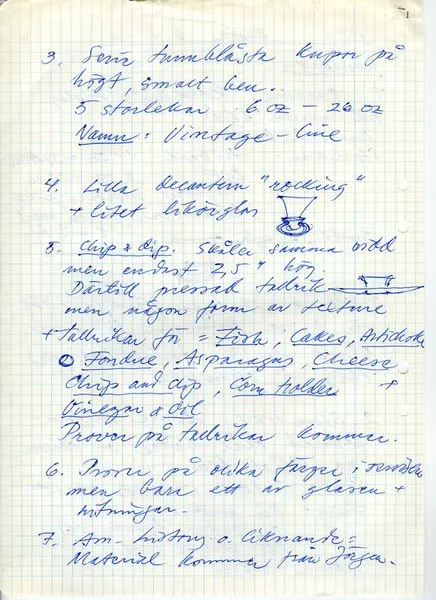 3. Serie tunnblåsta kupor på
högt, smalt ben.
5 storlekar 6 oz – 26 oz
Namn: Vintage-Line
4. Lilla decantern "rocking"
+ litet likörglas
5. Chip & dip. Skålen samma vidd
men endast 2,5" hög.
Därtill pressad tallrik
men någon form av texture
+ Tallrikar för = Fish, Cakes, Artichoke
Fondue, Asparagus, Cheese
Chip and dip, Corn holder +
Vinegar & Oil
Prover på tallrikar kommer.
6. Prover på olika färger i servisen
men bara ett av glasen +
ritningar.
7. Am-history o. liknande =
Material kommer från Jörgen.